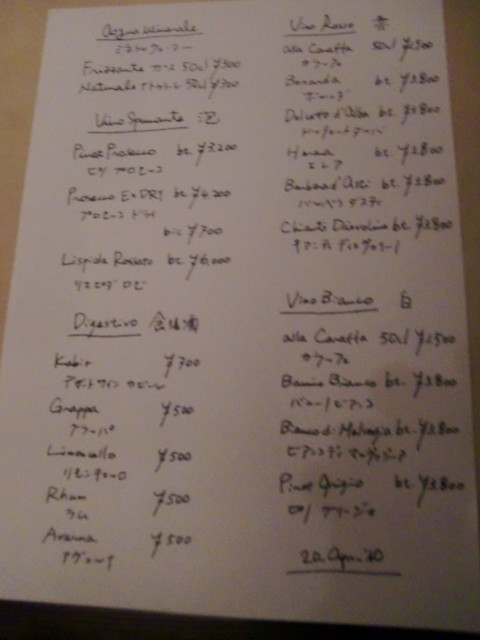 Acqua Minerale
ミネラルウォーター
Frizzante ガス 50cl ¥700
Naturale ナチュラール 50cl ¥700
Vino Spumante 泡
Pinot Prosecco bt. ¥3,200
ピノ プロセッコ
Prosecco Ex DRY bt. ¥4,200
プロセッコ ドライ
bic ¥700
Lispida Rosato bt. ¥6,000
リスピダ ロゼ
Digestivo 食後酒
Kabir ¥700
デザートワイン カビール
Grappa ¥500
グラッパ
Limoncello ¥500
リモンチェーロ
Rhum ¥500
ラム
Averna ¥500
アヴェルナ
Vino Rosso 赤
alla Caraffa 50cl ¥1,500
カラーフェ
Bonarda bt. ¥2,800
ボナルダ
Dolcetto d'Alba bt. ¥2,800
ドルチェット ダルバ
bt. ¥2,800
Barbera d'Asti bt. ¥2,800
バルベーラ ダスティ
Chianti bt. ¥3,800
キアンティ
Vino Bianco 白
alla Caraffa 50cl ¥1,500
カラーフェ
Bianco bt. ¥2,800
ビアンコ
Bianco di bt. ¥2,800
ビアンコ ディ
Pinot Grigio bt. ¥2,800
ピノ グリージョ
20. Apr. '10